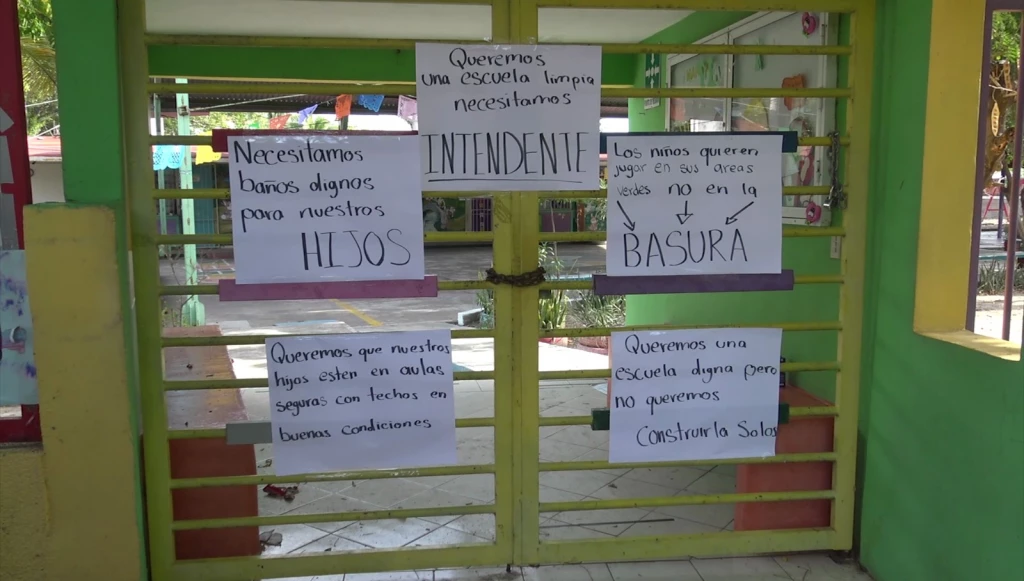 Queremos
una escuela limpia
necesitamos
INTENDENTE
Necesitamos
baños dignos
para nuestros
HIJOS
Los niños quieren
jugar en sus areas
verdes no en la
BASURA
Queremos que nuestros
hijos esten en aulas
seguras con techos en
buenas condiciones
Queremos una
escuela digna pero
no queremos
Construirla Solas